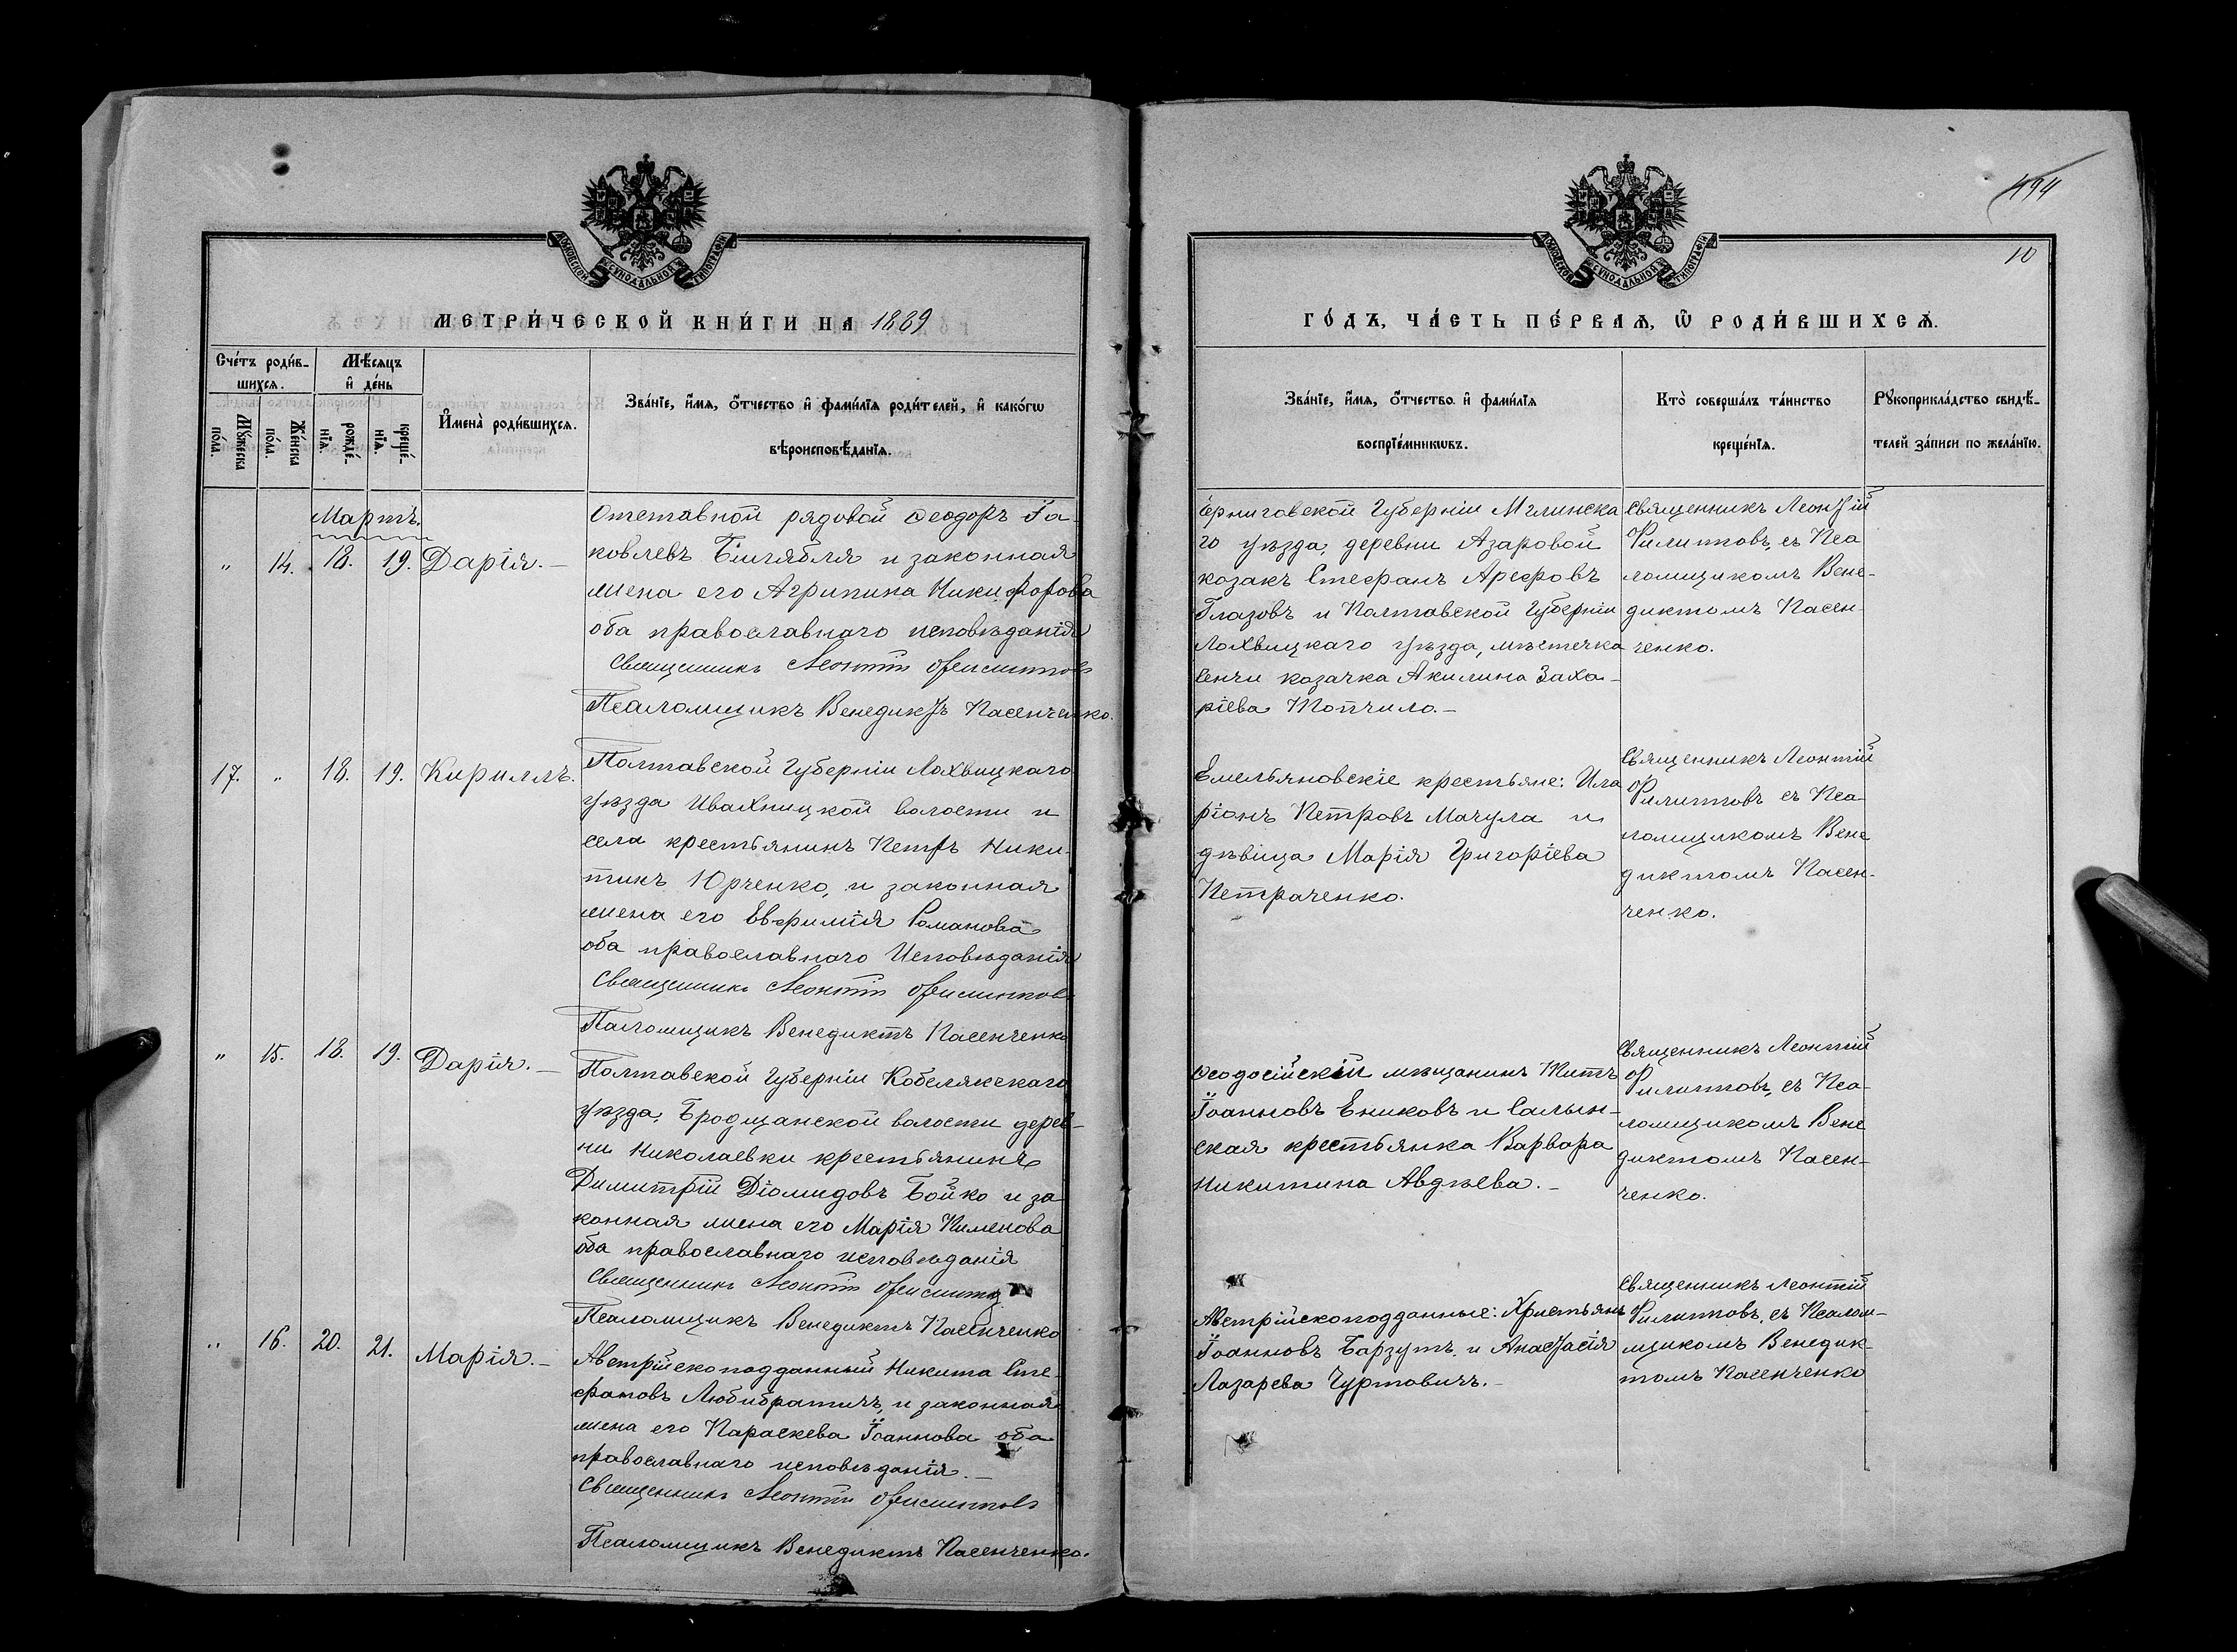 494
10
МОСКОВСКОЙ СУНОДАЛЬНОЙ ТИПОГРАФІИ
МЕТРИ́ЧЕСКОЙ КНИ́ГИ НА 1889
Сче́тъ роди́в-
шихсѧ.
Мѣ́сѧцъ
и҆ де́нь
Мꙋ́жеска
по́ла.
Же́нска
по́ла.
рожде́-
нїѧ.
креще́-
нїѧ.
И҆мена̀ роди́вшихсѧ.
Зва́нїе, и҆́мѧ, ѻ҆́тчество и҆ фами́лїѧ роди́телей, и҆ како́гѡ
вѣроисповѣ́данїѧ.
Мартъ.
" 14. 18. 19. Дарія.—
Отставной рядовой Ѳеодоръ Іа-
ковлевъ и законная
жена его Агрипина Никифорова
оба православнаго исповѣданія
Священникъ Леонтій Филиповъ
Псаломщикъ Венедиктъ Пасенченко.
17. " 18. 19. Кириллъ.
Полтавской Губерніи Лохвицкаго
уѣзда Ивахницкой волости и
села крестьянинъ Петръ Ники-
тинъ Юрченко, и законная
жена его Евфимія Романова
оба православнаго Исповѣданія
Священникъ Леонтій Филиповъ
Псаломщикъ Венедиктъ Пасенченко
" 15. 18. 19. Дарія.—
Полтавской Губерніи Кобелякскаго
уѣзда, Бродщанской волости дерев-
ни Николаевки крестьянинъ
Димитрій Діомидовъ Бойко и за
конная жена его Марія Пименова
оба православнаго исповѣданія
Священникъ Леонтій Филипов
Псаломщикъ Венедиктъ Пасенченко
" 16. 20. 21. Марія.—
Австрійскоподданный Никита Сте-
фановъ Любибратичъ, и законная
жена его Параскева Іоаннова оба
православнаго исповѣданія.—
Священникъ Леонтій Филиповъ
Псаломщикъ Венедиктъ Пасенченко.
МОСКОВСКОЙ СУНОДАЛЬНОЙ ТИПОГРАФІИ
ГО́ДЪ, ЧА́СТЬ ПЕ́РВАѦ, Ѽ РОДИ́ВШИХСѦ.
Зва́нїе, и҆́мѧ, ѻ҆́тчество и҆ фами́лїѧ
воспрїе́мникѡвъ.
Кто̀ соверша́лъ та́инство
креще́нїѧ.
Рꙋкоприкла́дство свидѣ́-
телей за́писи по жела́нїю.
Черниговской Губерніи Мглинска
го уѣзда, деревни Азаровой
козакъ Стефанъ Арефовъ
Глазовъ и Полтавской Губерніи
Лохвицкаго уѣзда, мѣстечка
Сенчи козачка Акилина Заха-
ріева Топчило.—
Священникъ Леонтій
Филиповъ, съ Пса
ломщикомъ Вене-
диктомъ Пасен-
ченко.
Емельяновскіе крестьяне: Ила
ріонъ Петровъ Мачула и
дѣвица Марія Григоріева
Петраченко.
Священникъ Леонтій
Филиповъ съ Пса-
ломщикомъ Вене
диктомъ Пасен-
ченко.
Ѳеодосійскій мѣщанинъ Титъ
Іоанновъ Ениковъ и Салын-
ская крестьянка Варвара
Никитина Авдѣева.—
Священникъ Леонтій
Филиповъ, съ Пса-
ломщикомъ Вене
диктомъ Пасен-
ченко.
Австрійскоподданные: Христьянъ
Іоанновъ Барзутъ и Анастасія
Лазарева Чуртовичъ.—
Священникъ Леонтій
Филиповъ, съ Псалом-
щикомъ Венедик-
томъ Пасенченко